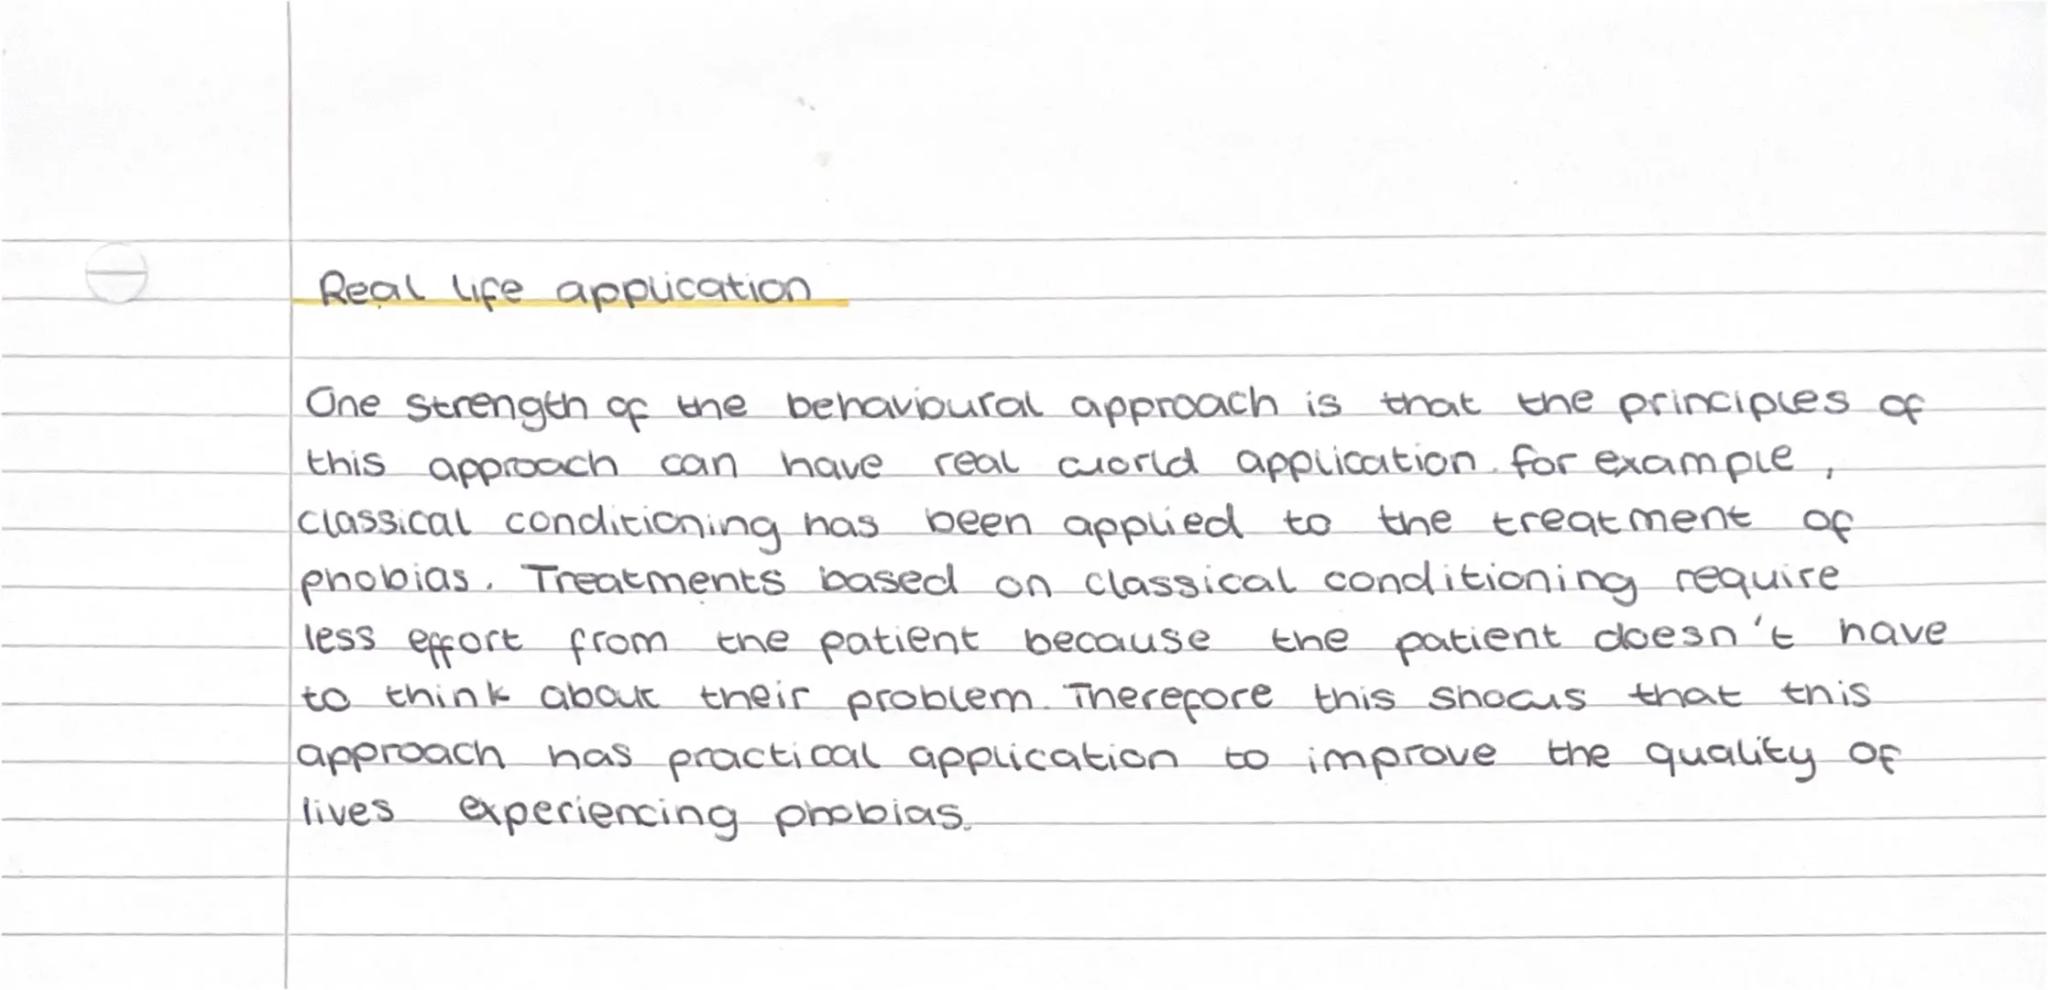 Real life application
One strength of the behavioural approach is that the principles of
this approach can have real world application. for example,
classical conditioning has been applied to the treatment of
phobias. Treatments based on classical conditioning require
less effort from the patient because the patient doesn't have
to think about their problem. Therefore this shows that this
approach has practical application to improve the quality of
lives experiencing phobias.